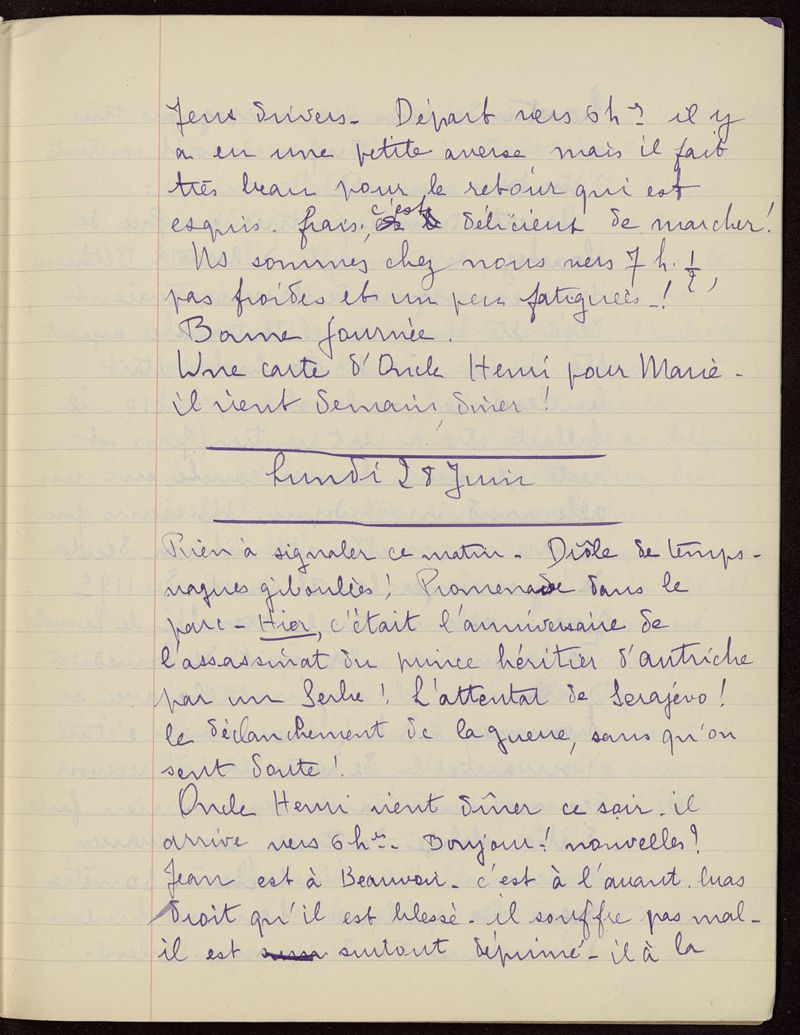 Jeux divers - Départ vers 6 hres il y
a eu une petite averse mais il fait
très beau pour le retour qui est
exquis. frais, c'est délicieux de marcher!
Ns sommes chez nous vers 7 h. 1/2,
pas froides et un peu fatiguées -!
Bonne journée.
Une carte d'Oncle Henri pour Marie -
il vient demain, dîner!
Lundi 28 Juin
Rien à signaler ce matin - Drôle de temps -
vagues giboulées! Promenade dans le
parc - Hier, c'était l'anniversaire de
l'assassinat du prince héritier d'Autriche
par un Serbe! L'attentat de Serajévo!
le déclanchement de la guerre, sans qu'on
s'en doute!
Oncle Henri vient dîner ce soir. il
arrive vers 6 hres - Bonjour! nouvelles?
Jean est à Beauvoir - c'est à l'avant. bras
droit qu'il est blessé - il souffre pas mal -
il est surtout déprimé - il à la